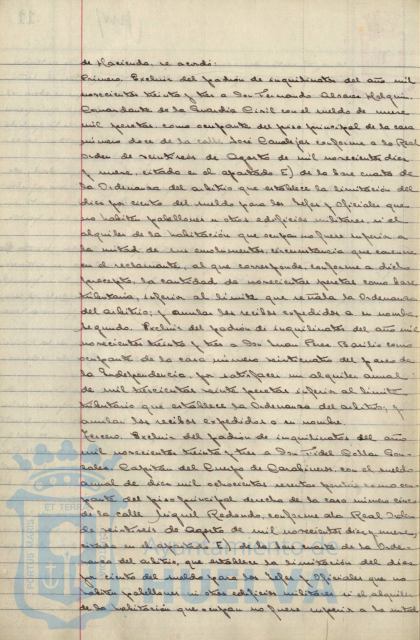 de Hacienda, se acordó:
Primero. Excluir del padrón de inquilinatos del año mil
novecientos treinta y tres a Don Fernando Alvarez Holguin
Comandante de la Guardia Civil con el sueldo de nueve
mil pesetas, como ocupante del piso principal de la casa
número doce de la calle José Canalejas conforme a la Real
orden de veintiseis de Agosto de mil novecientos diez
y nueve, citada en el apartado E) de la base cuarta de
la Ordenanza del arbitrio que establece la limitación del
diez por ciento del sueldo para los Jefes y Oficiales que
no habiten pabellones u otros edificios militares, si el
alquiler de la habitación que ocupa no fuere superior a
la mitad de sus emolumentos, circunstancia que concurre
en el reclamante, al que corresponde, conforme a dicho
precepto, la cantidad de novecientas pesetas como base
tributaria, inferior al límite que señala la Ordenanza
del arbitrio; y anular los recibos expedidos a su nombre.
Segundo. Excluir del padrón de inquilinatos del año mil
novecientos treinta y tres a Don Juan Pérez Barilio como
ocupante de la casa número veinticuatro del paseo de
la Independencia, por satisfacer un alquiler anual
de mil trescientas veinte pesetas inferior al límite
tributario que establece la Ordenanza del arbitrio; y
anular los recibos expedidos a su nombre.
Tercero. Excluir del padrón de inquilinatos del año
mil novecientos treinta y tres a Don Fidel Gon-
zalez, Capitán del Cuerpo de Carabineros, con el sueldo
anual de diez mil ochocientas pesetas como ocu-
pante del piso principal derecha de la casa número cinco
de la calle Miguel Redondo, conforme a la Real Orden
de veintiseis de Agosto de mil novecientos diez y nueve,
citada en el apartado E) de la base cuarta de la Orde-
nanza del arbitrio, que establece la limitación del diez
por ciento del sueldo para los Jefes y Oficiales que no
habiten pabellones ni otros edificios militares si el alquiler
de la habitación que ocupan no fuere superior a la mitad
PORTUS MARIS
ET TERRAE
Ayuntamiento de
HUELVA